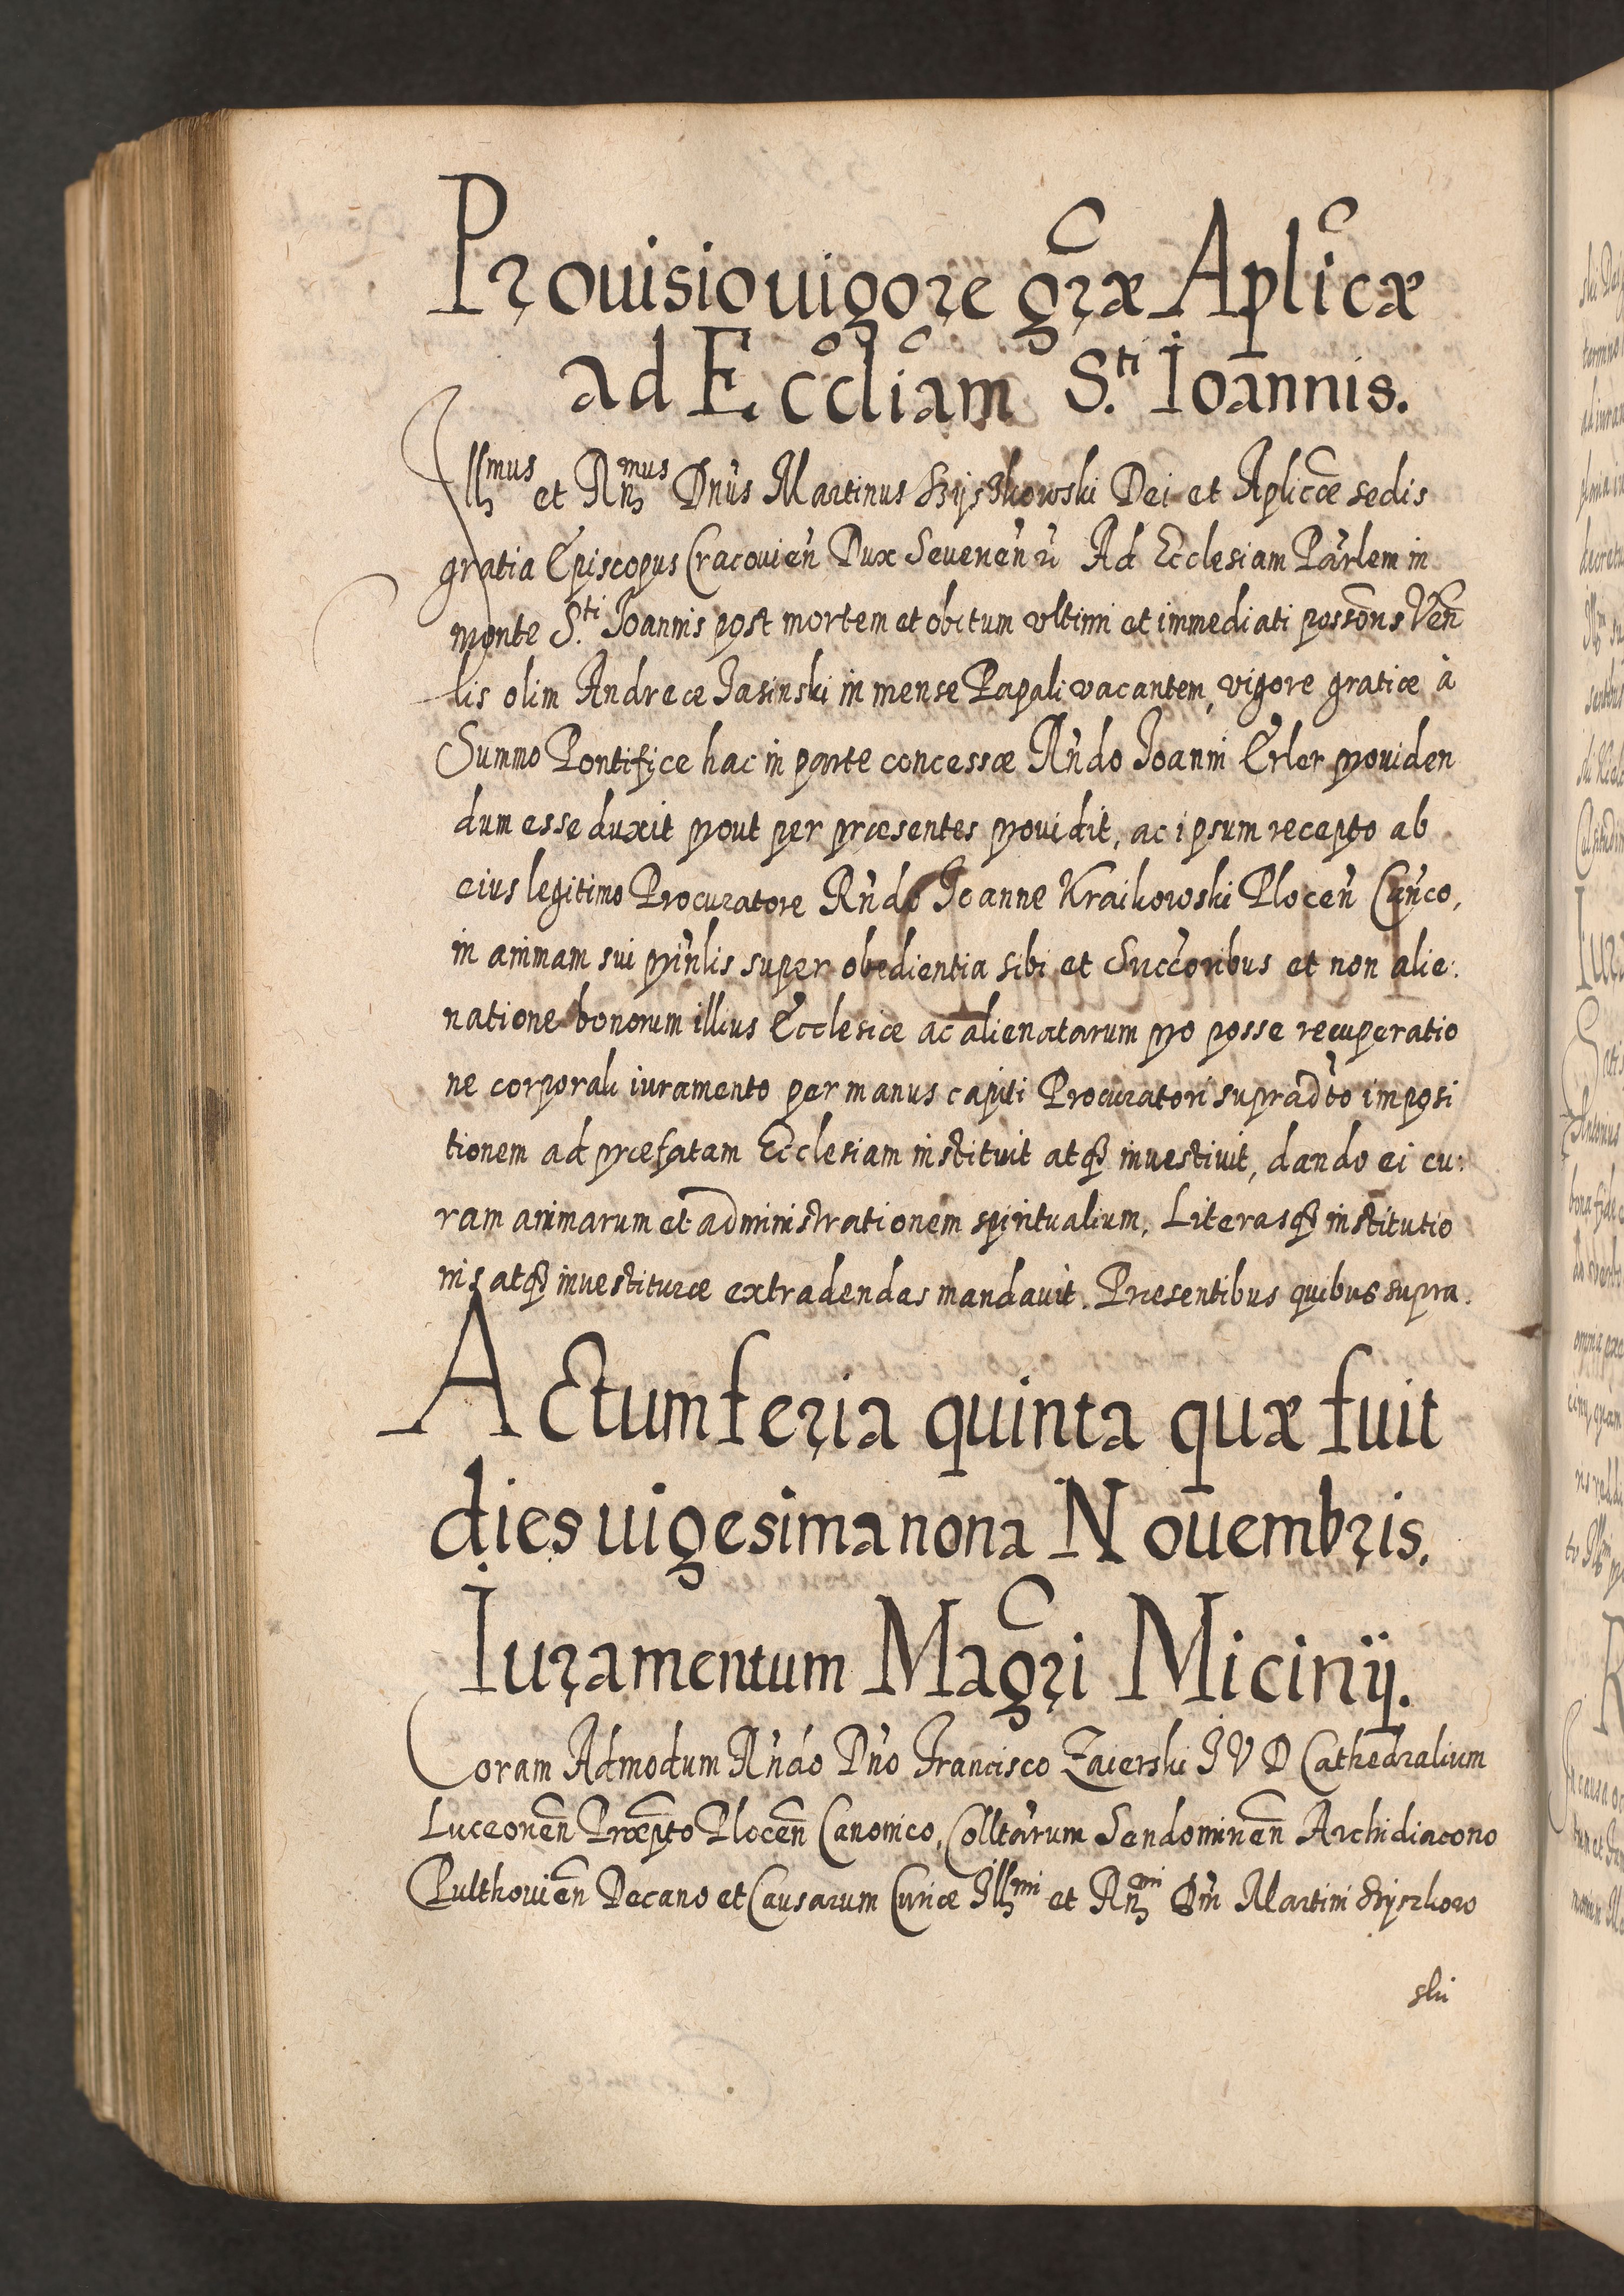 Prouisio uigore gr̃æ Aplicæ
ad Eccliam S.ti Ioannis.
Illmus et Rñmus Dnus Martinus Szyszkowski Dei et Aplicæ sedis
gratia Episcopus Cracouien̄ Dux Seueren̄ Ad Ecclesiam Parlem in
monte S.ti Ioannis post mortem et obitum vltimi et immediati possōns Ven
lis olim Andreæ Iasinski in mense Papali vacantem, vigore gratiæ à
Summo Pontifice hac in parte concessæ Rndo Ioanni Erler prouiden
dum esse duxit prout per præsentes prouidit, ac ipsum recepto ab
eius legitimo Procuratore Rndo Ioanne Kraikowski Plocen̄ Canco,
in animam sui prinlis super obedientia sibi et Succoribus et non alie:
natione bonorum illius Ecclesiæ ac alienatarum pro posse recuperatio
ne corporali iuramento per manus capiti Procuratori supradto imposi
tionem ad præfatam Ecclesiam instituit atq₃ inuestiuit, dando ei cu:
ram animarum et administrationem spiritualium, Literasq₃ institutio
nis atq₃ inuestituræ extradendas mandauit. Præsentibus quibus supra.
Actum feria quinta quæ fuit
dies uigesima nona Nouembris.
Iuramentum Magri Micinij.
Coram Admodum Rndo Dno Francisco Zaierski I V D Cathedralium
Luceonen̄ Præpto Plocen̄ Canonico, Colltarum Sendomirien̄ Archidiacono
Pulthouien̄ Decano et Causarum Curiæ Illmi et Rñmi Dni Martini Szyszkow
ski